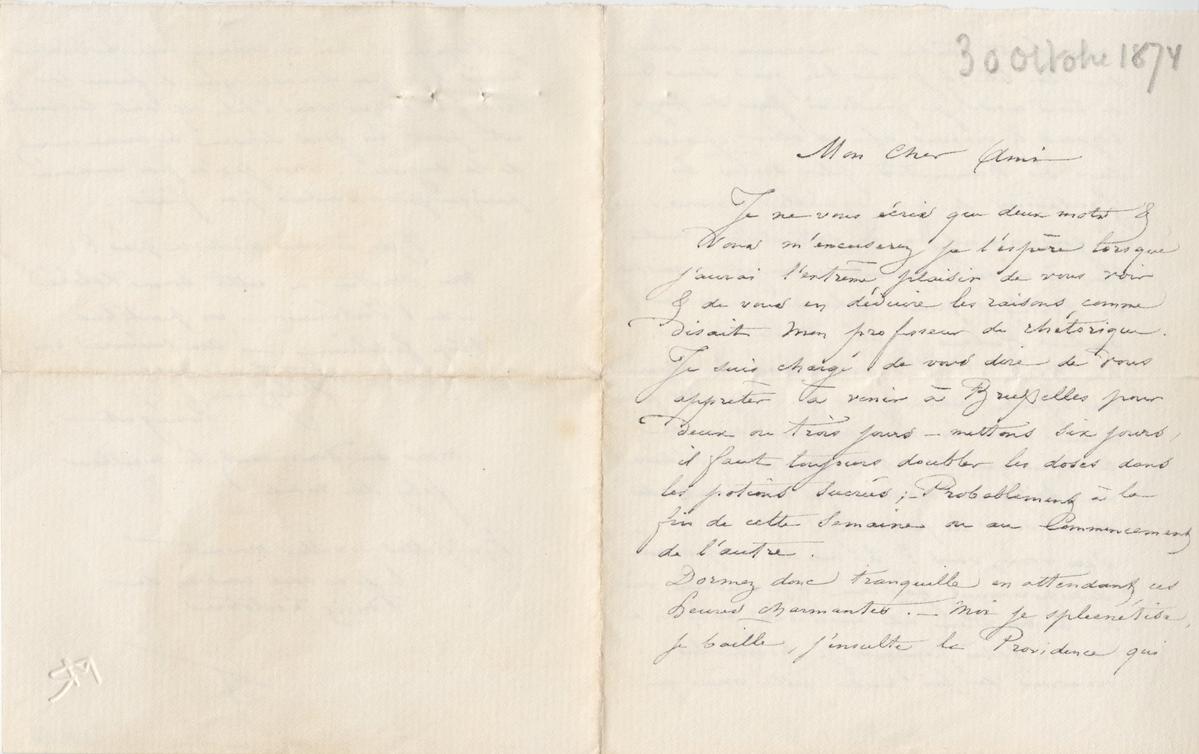 30 octobre 1874
Mon cher Ami
Je ne vous écris que deux mots &
Vous m'excuserez je l'espère lorsque
j'aurai l'extrême plaisir de vous voir
& de vous en déduire les raisons comme
disait mon professeur de rhétorique.
Je suis chargé de vous dire de vous
apprêter à venir à Bruxelles pour
deux ou trois jours — mettons six jours,
il faut toujours doubler les doses dans
les potions sucrées ; — Probablement à la
fin de cette Semaine ou au Commencement
de l'autre.
Dormez donc tranquille en attendant ces
heures charmantes. — Moi je spleenétise,
je baille, j'insulte la Providence qui